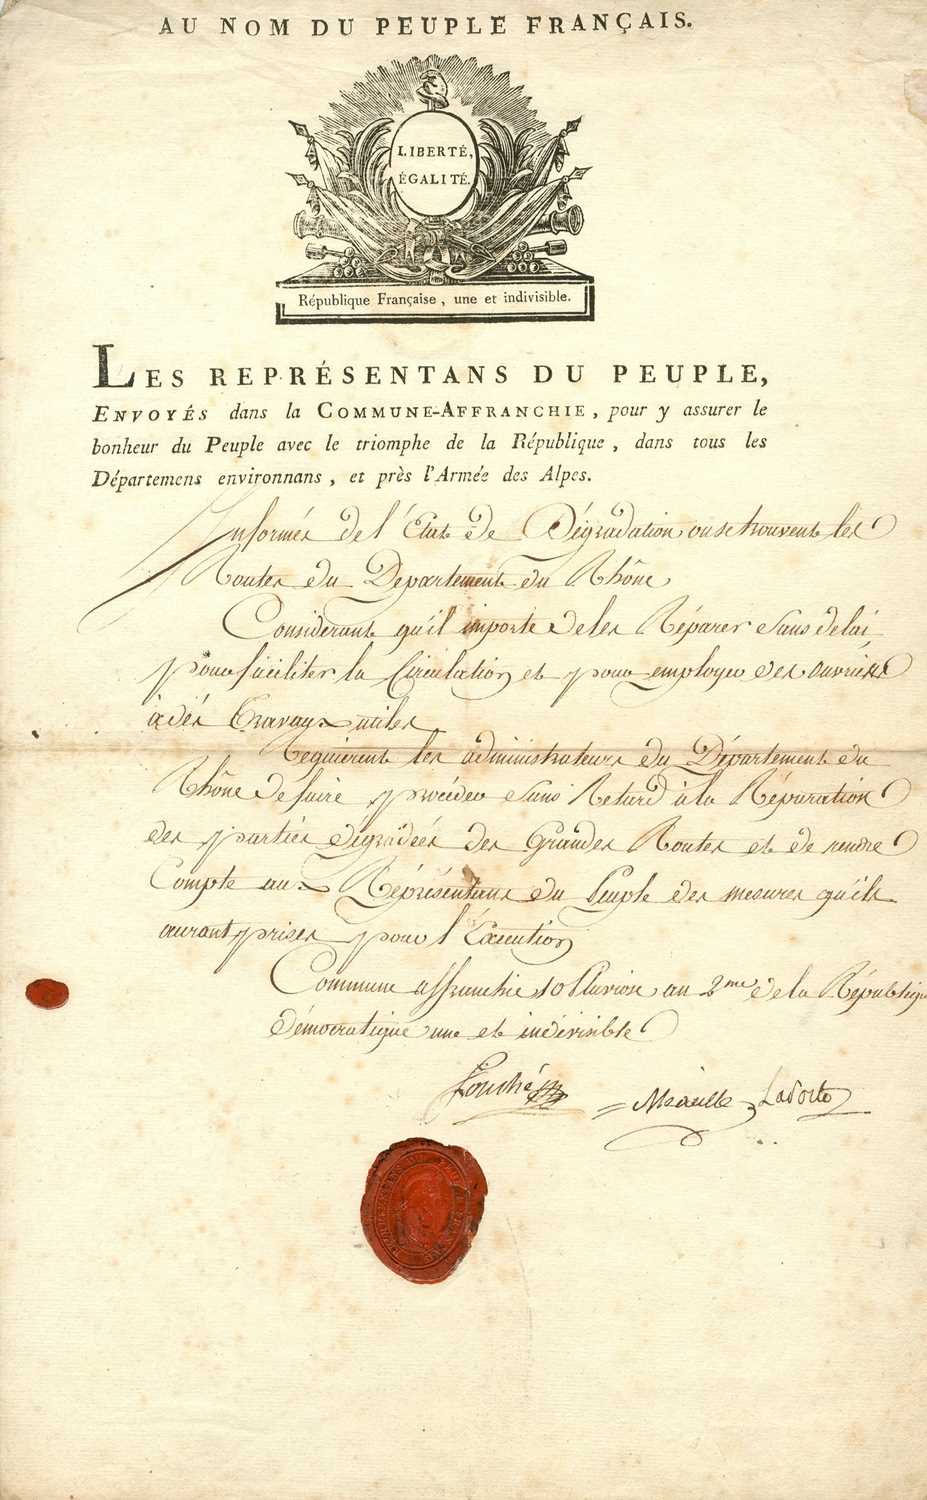 AU NOM DU PEUPLE FRANÇAIS.
LIBERTÉ,
ÉGALITÉ.
République Française, une et indivisible.
LES REPRÉSENTANS DU PEUPLE,
ENVOYÉS dans la COMMUNE-AFFRANCHIE, pour y assurer le
bonheur du Peuple avec le triomphe de la République, dans tous les
Départemens environnans, et près l'Armée des Alpes.
Informés de l'État de Dégradation ou se trouvent les
Routes du Departement du Rhône
Considerant qu'il importe de les Réparer Sans delai
pour faciliter la Circulation et pour employer des ouvriers
à dés Travaux utiles
Requierent les administrateurs du Département du
Rhône de faire procéder Sans Retard à la Réparation
des partiés dégradéés des Grandes Routes et de rendre
Compte aux Réprésentans du Peuple des mesures qu'ils
auront prises pour l'Éxécution
Commune affranchie 10 Pluviose an 2me de la République
démocratique une et indivisible
Fouché
Méaulle Laporte